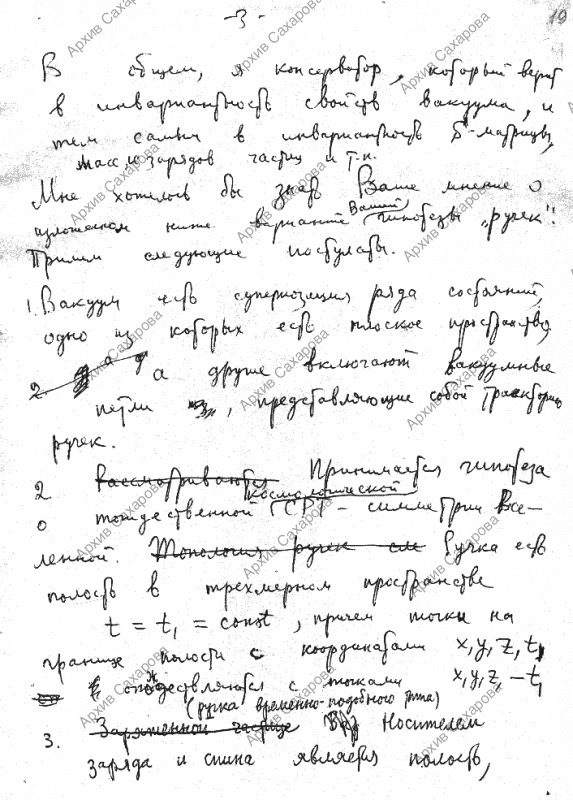 -3-
19
В общем, я консерватор, который верит
в инвариантность свойств вакуума, и
тем самым в инвариантность S-матрицы,
масс и зарядов частиц и т.п.
Мне хотелось бы знать Ваше мнение о
изложенном ниже варианте Вашей гипотезы "ручек".
Примем следующие постулаты.
1. Вакуум есть суперпозиция ряда состояний,
одно из которых есть плоское пространство,
2.
а другие включают вакуумные
петли, представляющие собой траектории
ручек.
2 рассматриваются Принимается гипотеза
космологической
о тождественной CPT-симметрии Все-
ленной. Топология ручек Ручка есть
полость в трехмерном пространстве
t = t₁ = const, причем точки на
границе полости с координатами x, y, z, t₁
отождествляются с точками x, y, z, -t₁
(ручка временно-подобного типа)
3. Заряженной частице Носителем
заряда и спина является полость,
Архив Сахарова